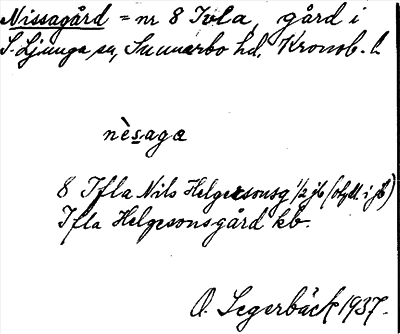 Nissagård = nr 8 Ivla, gård i
S. Ljunga sn, Sunnerbo hd, Kronob. l.
nèsaga
8 Ifla Nils Helgesonsg 1/2 jb (otydl. i jb)
Ifla Helgesonsgård kb.
O. Segerbäck 1937.